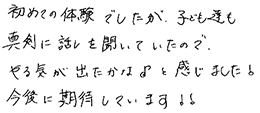 初めての体験でしたが、子ども達も
真剣に話しを聞いていたので、
やる気が出たかな♪と感じました!
今後に期待しています!!